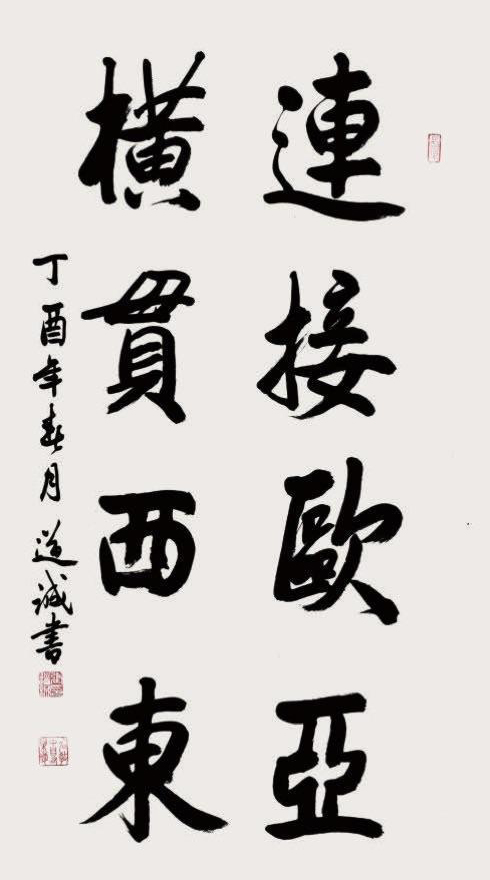 連接歐亞
橫貫西東
丁酉年春月道誠書